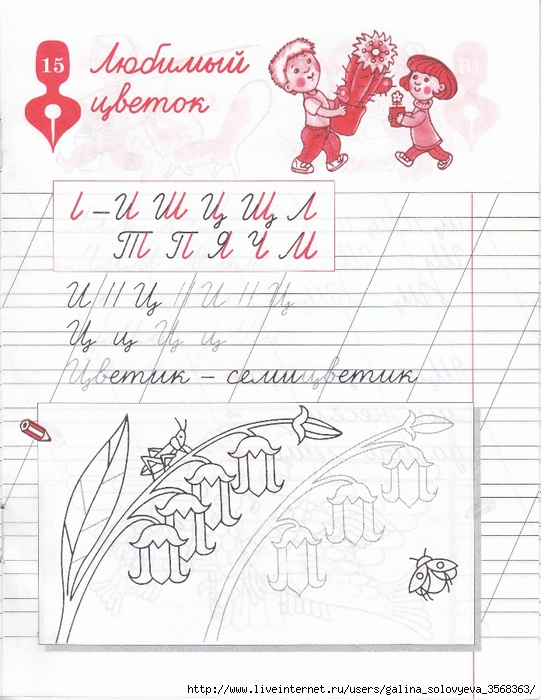 15
Любимый
цветок
l – И Ш Ц Щ Л
Т П Я Ч М
И II Ц II И II Ц
Ц ц Ц ц
Цветик – семицветик
http://www.liveinternet.ru/users/galina_solovyeva_3568363/